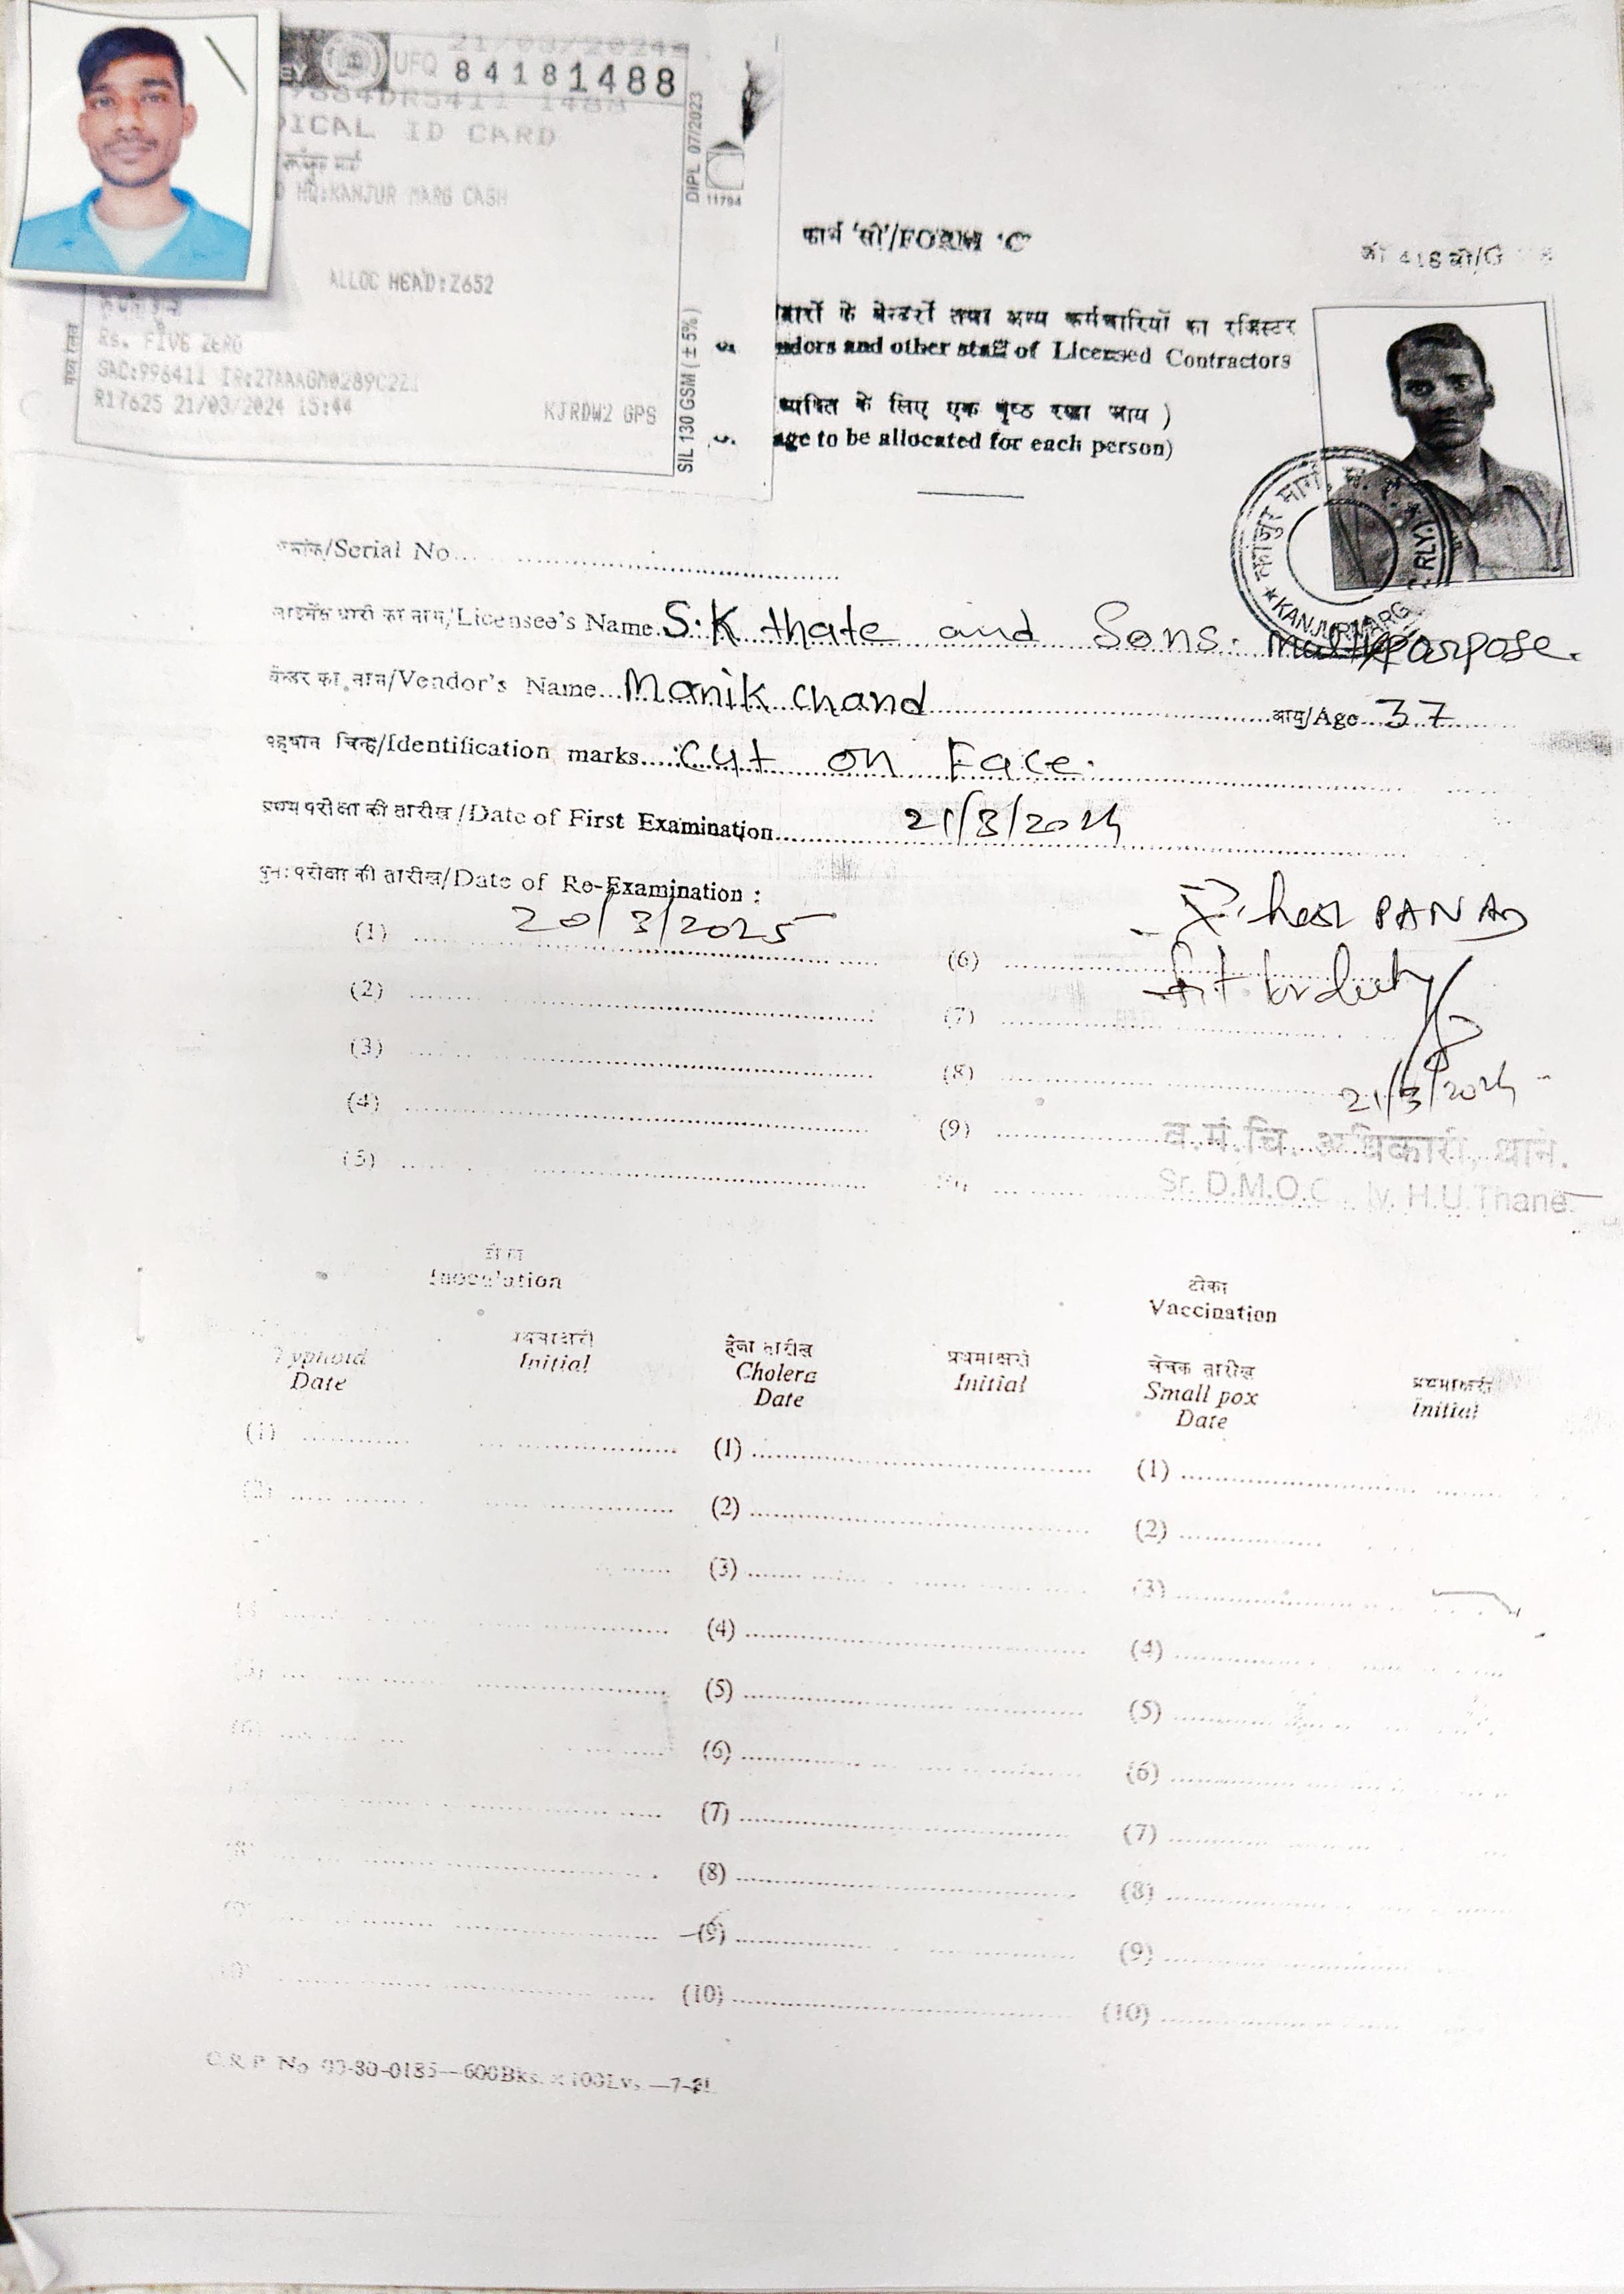 21/03/2024
UFQ 84181488
ICAL ID CARD
HQ:KANJUR MARG CASH
ALLOC HEAD:Z652
Rs. FIVE ZERO
SAC:996411
R17625 21/03/2024 15:44
KJRDW2 GPS
SIL 130 GSM (± 5%)
DIPL 07/2023
11794
फार्म 'सी'/FORM 'C'
के वेन्डरों तथा अन्य कर्मचारियों का रजिस्टर
ndors and other staff of Licensed Contractors
व्यक्ति के लिए एक पृष्ठ रखा जाय )
age to be allocated for each person)
कांजुर मार्ग
KANJURMARG
RLY.
/Serial No.
का नाम/Licensee's Name S.K thate and Sons. multipurpose.
वेन्डर का नाम/Vendor's Name Manik chand आयु/Age 37
पहचान चिन्ह/Identification marks Cut on Face.
प्रथम परीक्षा की तारीख/Date of First Examination 21/3/2024
पुन: परीक्षा की तारीख/Date of Re-Examination :
(1) 20/3/2025
(6)
fit for duty
(2)
(7)
(3)
(8)
21/3/2024
(4)
(9)
व.मं.चि. अधिकारी,
(5)
Sr. D.M.O. H.U.Thane
टीका
Inoculation
टीका
Vaccination
Typhoid
Date
प्रथमाक्षरी
Initial
हैजा तारीख
Cholera
Date
प्रथमाक्षरी
Initial
चेचक तारीख
Small pox
Date
प्रथमाक्षरी
Initial
(1) (1) (1)
(2) (2) (2)
(3) (3)
(4) (4)
(5) (5) (5)
(6) (6) (6)
(7) (7)
(8) (8) (8)
(9) (9)
(10) (10)
C.R.P. No 00-80-0185—600Bks.×100Lvs